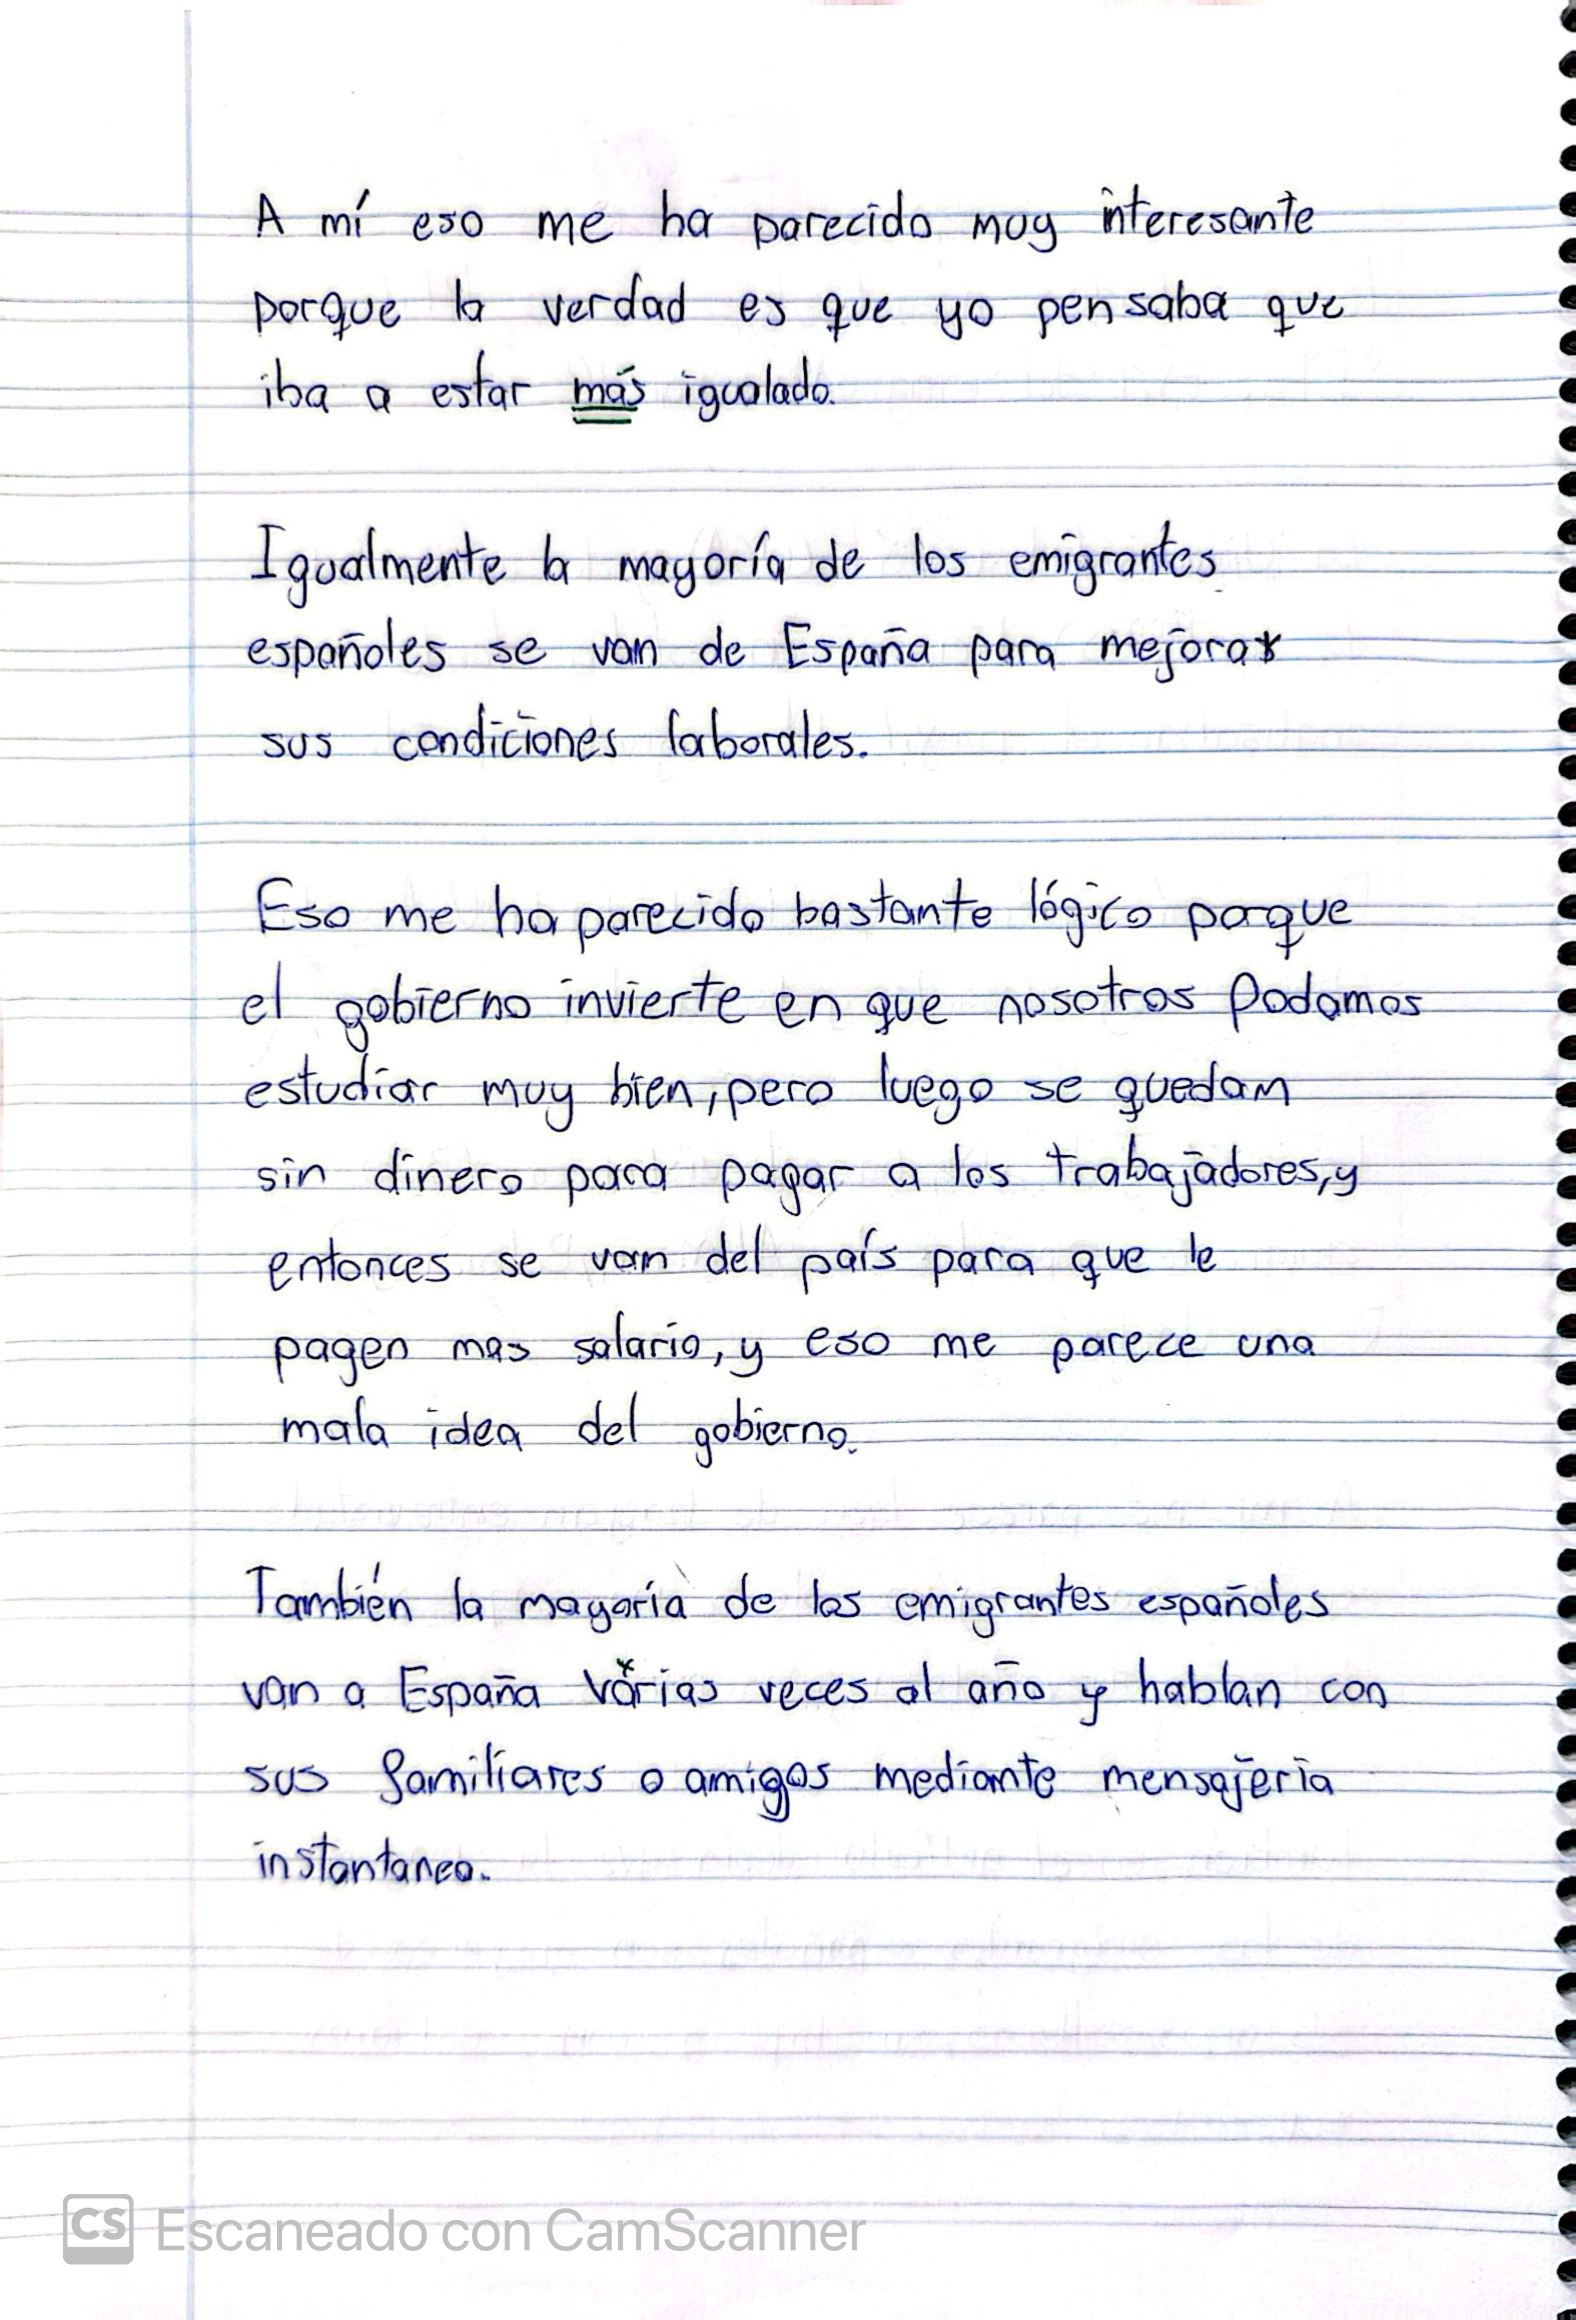 A mí eso me ha parecido muy interesante
porque la verdad es que yo pensaba que
iba a estar más igualado.
Igualmente la mayoría de los emigrantes
españoles se van de España para mejorar
sus condiciones laborales.
Eso me ha parecido bastante lógico porque
el gobierno invierte en que nosotros Podamos
estudiar muy bien, pero luego se quedan
sin dinero para pagar a los trabajadores, y
entonces se van del país para que le
pagen mas salario, y eso me parece una
mala idea del gobierno.
También la mayoría de los emigrantes españoles
van a España varias veces al año y hablan con
sus familiares o amigos mediante mensajería
instantaneo.
CS Escaneado con CamScanner